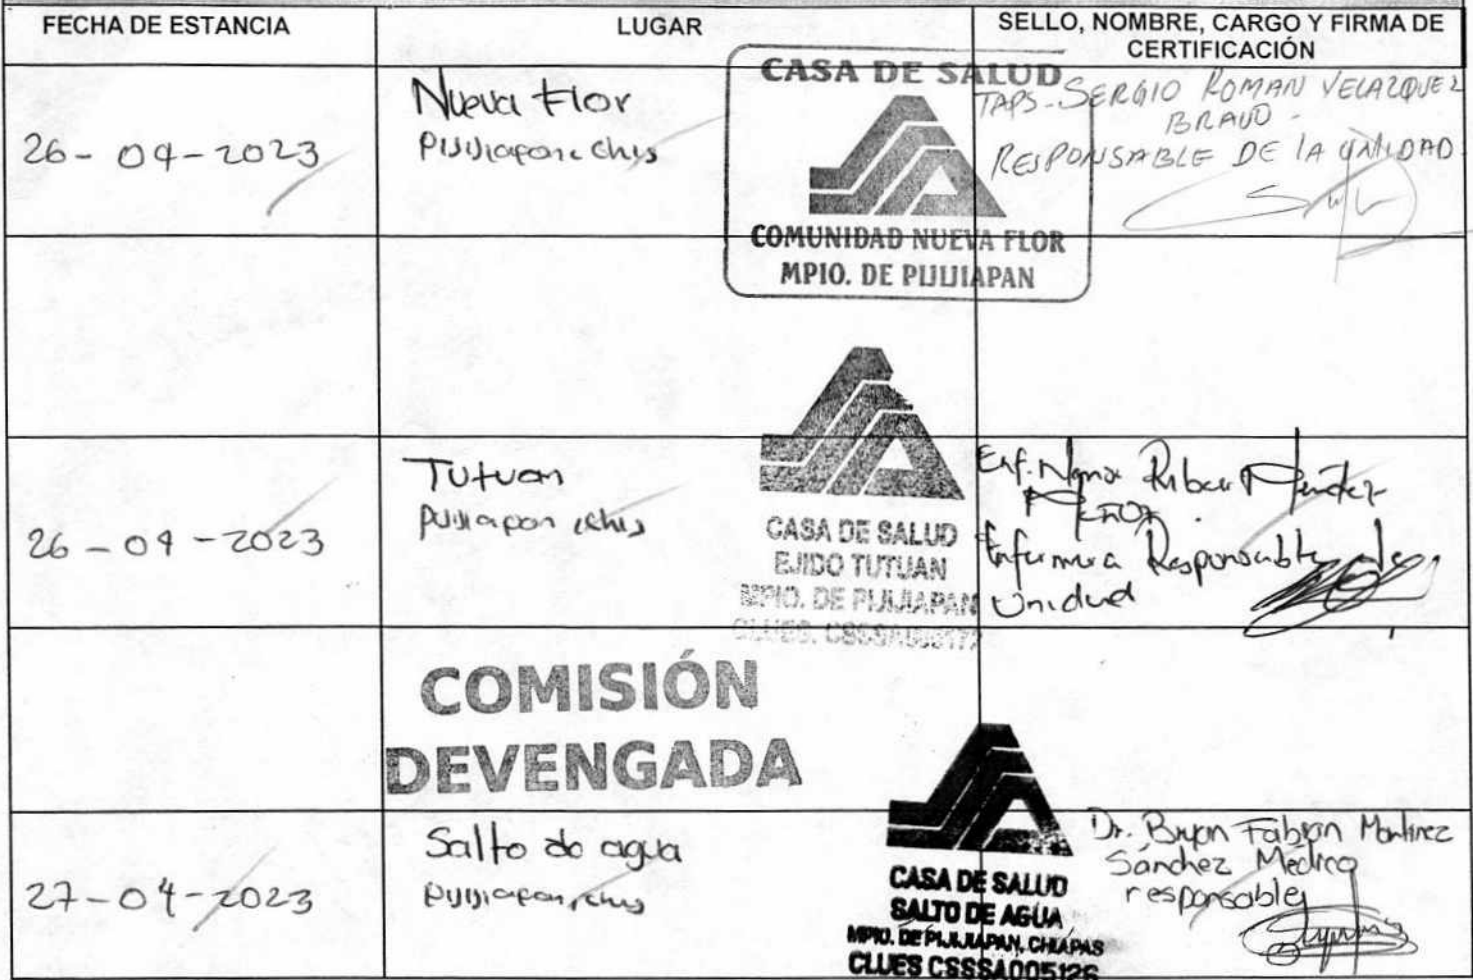 FECHA DE ESTANCIA
LUGAR
SELLO, NOMBRE, CARGO Y FIRMA DE
CERTIFICACIÓN
26-04-2023
Nueva Flor
Pijijiapan, Chis
CASA DE SALUD
COMUNIDAD NUEVA FLOR
MPIO. DE PIJIJIAPAN
TAPS-SERGIO ROMAN VELAZQUEZ
BRAVO-
RESPONSABLE DE LA UNIDAD
26-04-2023
Tutuan
Pijijiapan, Chis
CASA DE SALUD
EJIDO TUTUAN
MPIO. DE PIJIJIAPAN
Enf.
Enfermera Responsable de
Unidad
COMISIÓN
DEVENGADA
27-04-2023
Salto de agua
Pijijiapan, Chis
CASA DE SALUD
SALTO DE AGUA
MPIO. DE PIJIJIAPAN, CHIAPAS
CLUES CSSSA005126
Dr. Bryan Fabian Martinez
Sánchez Medico
responsable